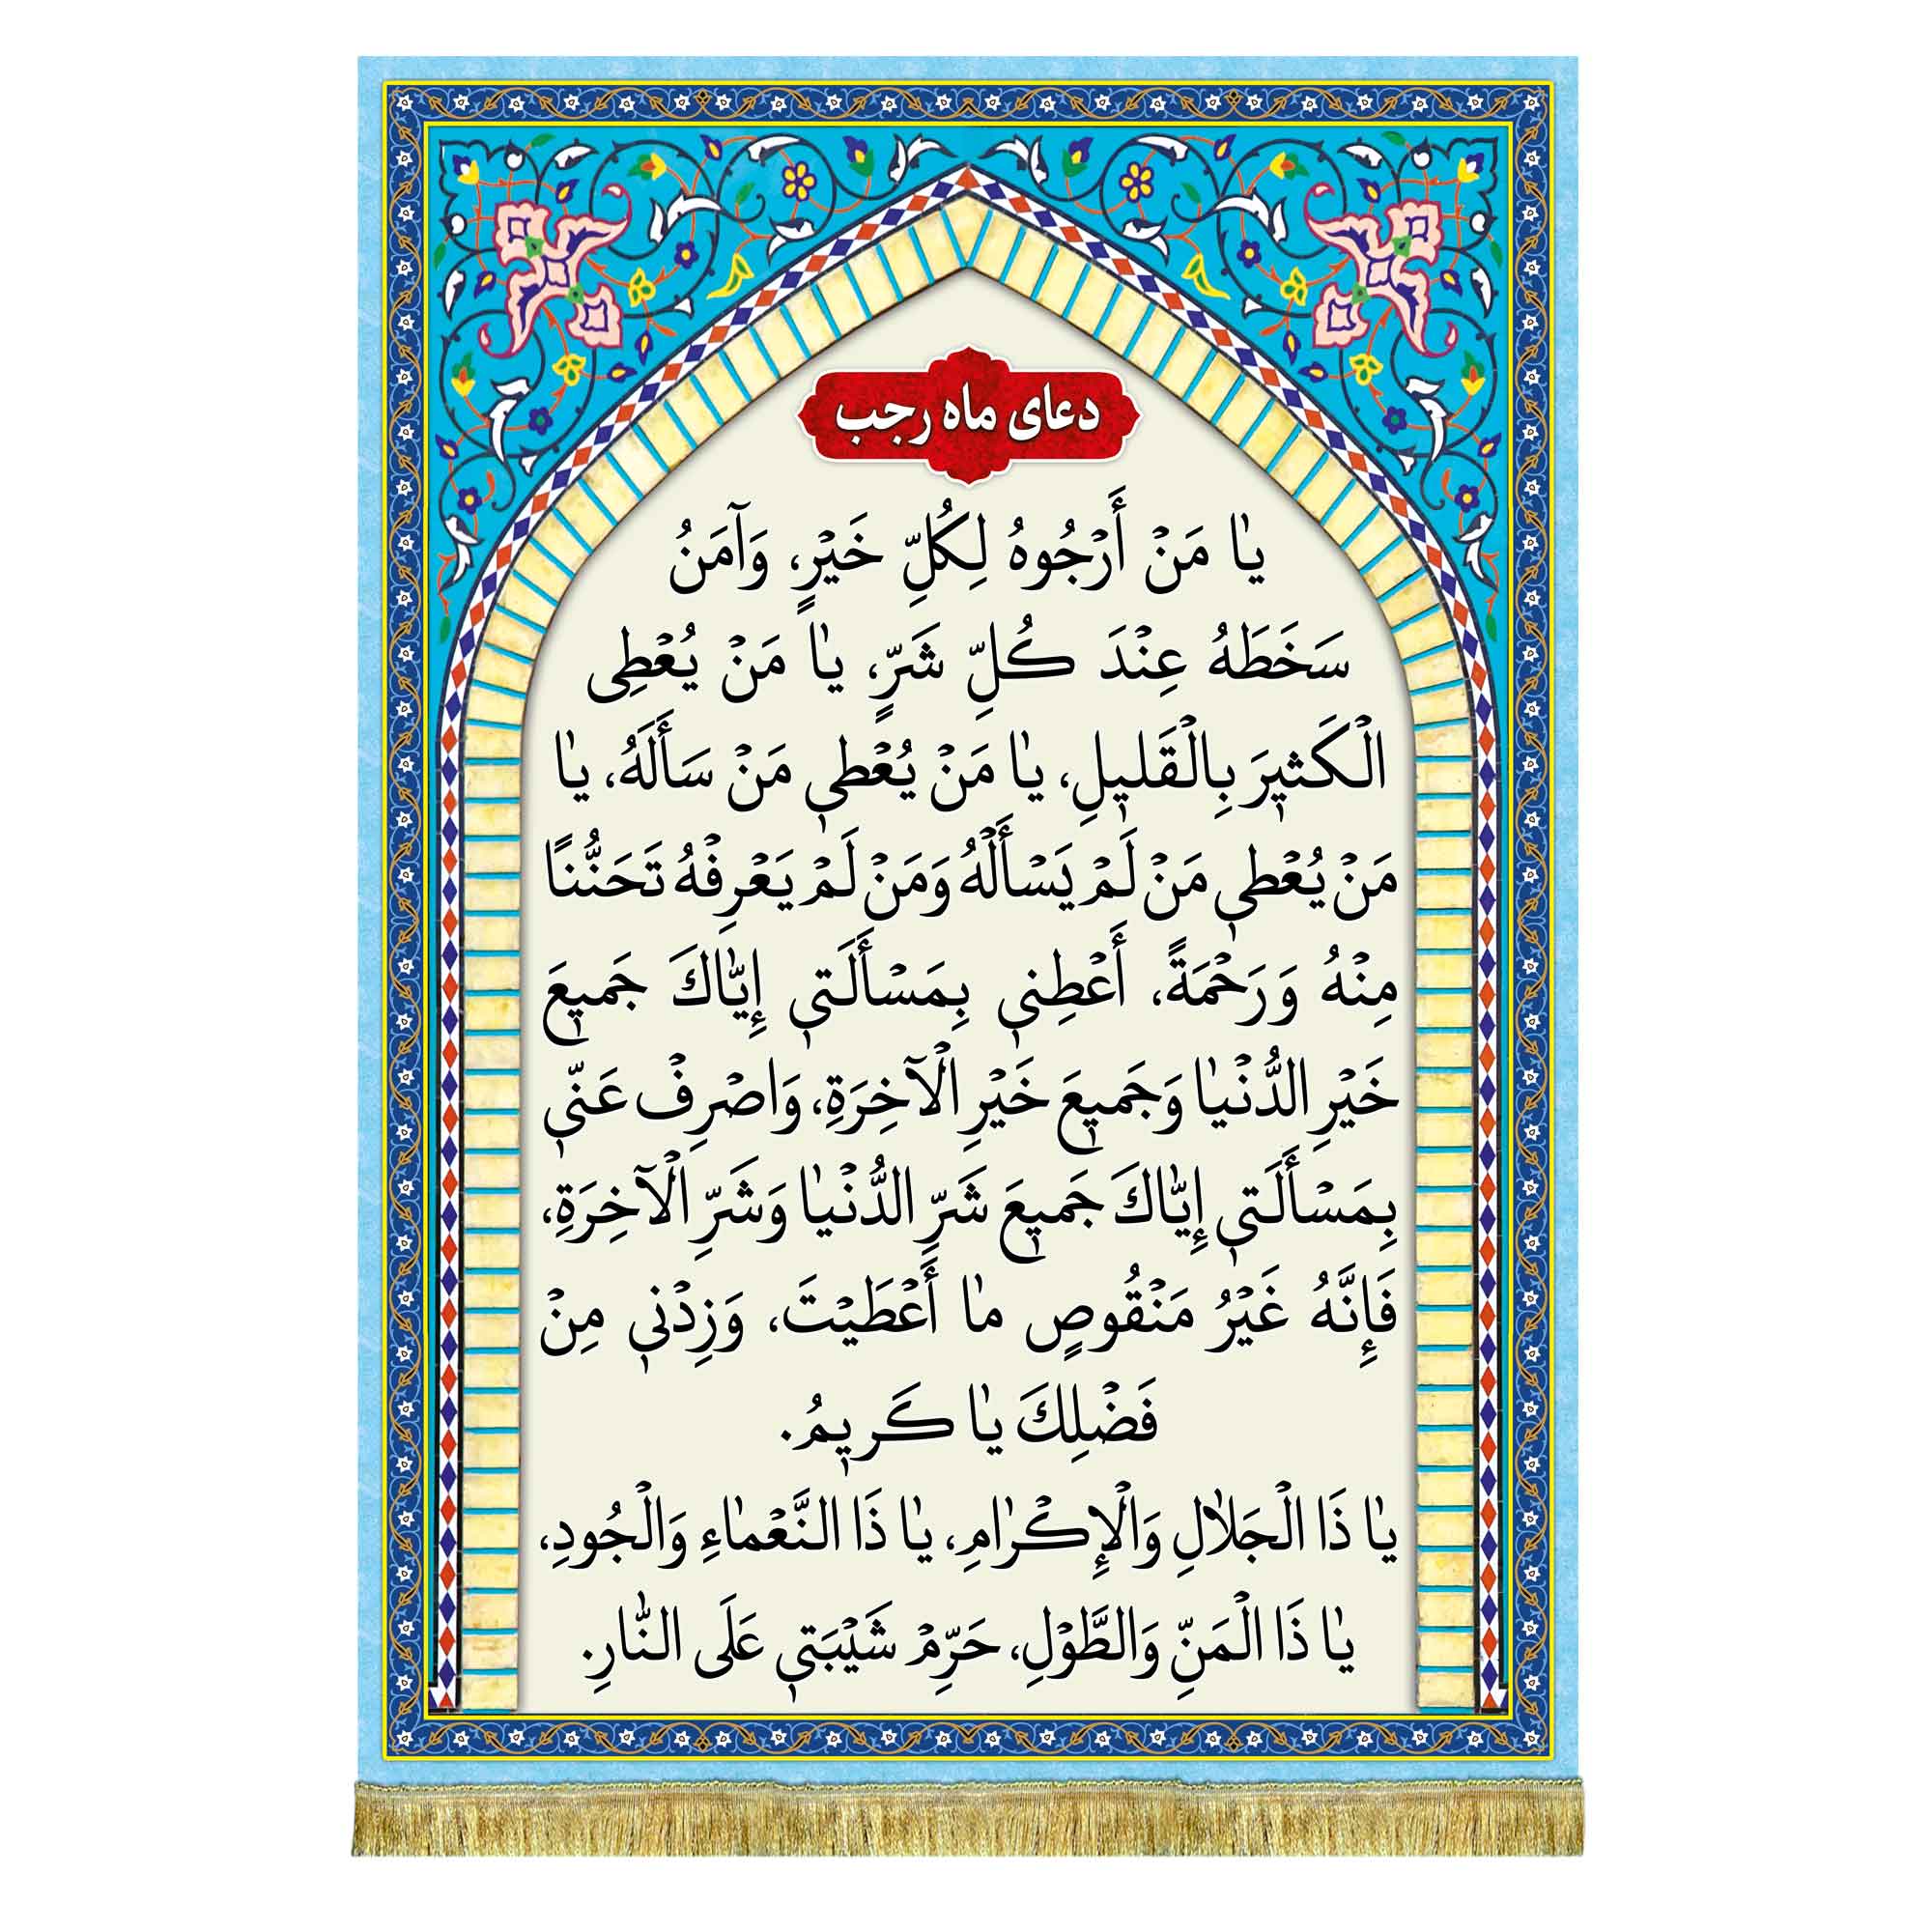 دعای ماه رجب
يٰا مَنْ أَرْجُوهُ لِكُلِّ خَيْرٍ، وَآمَنُ
سَخَطَهُ عِنْدَ كُلِّ شَرٍّ، يٰا مَنْ يُعْطِى
الْكَثيٖرَ بِالْقَليٖلِ، يٰا مَنْ يُعْطيٖ مَنْ سَأَلَهُ، يٰا
مَنْ يُعْطيٖ مَنْ لَمْ يَسْأَلْهُ وَمَنْ لَمْ يَعْرِفْهُ تَحَنُّنًا
مِنْهُ وَرَحْمَةً، أَعْطِنيٖ بِمَسْأَلَتيٖ إِيّٰاكَ جَميٖعَ
خَيْرِ الدُّنْيٰا وَجَميٖعَ خَيْرِ الْآخِرَةِ، وَاصْرِفْ عَنّيٖ
بِمَسْأَلَتيٖ إِيّٰاكَ جَميٖعَ شَرِّ الدُّنْيٰا وَشَرِّ الْآخِرَةِ،
فَإِنَّهُ غَيْرُ مَنْقُوصٍ مٰا أَعْطَيْتَ، وَزِدْنيٖ مِنْ
فَضْلِكَ يٰا كَريٖمُ.
يٰا ذَا الْجَلاٰلِ وَالْإِكْرٰامِ، يٰا ذَا النَّعْمٰاءِ وَالْجُودِ،
يٰا ذَا الْمَنِّ وَالطَّوْلِ، حَرِّمْ شَيْبَتيٖ عَلَى النّٰارِ.